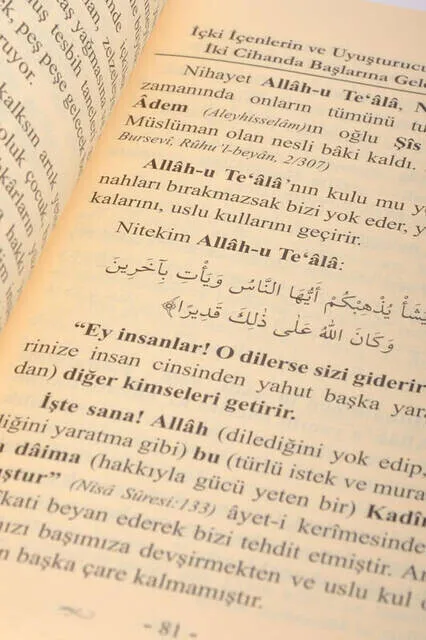 kalksın artık
oluk çocuk
İçki İçenlerin ve Uyuşturucu
İki Cihanda Başlarına Gele
Nihayet Allâh-u Te‘âlâ, N
zamanında onların tümünü tu
Âdem (Aleyhisselâm)ın oğlu Şîs
Müslüman olan nesli bâki kaldı.
Bursevî, Rûhu'l-beyân, 2/307)
Allâh-u Te‘âlâ'nın kulu mu y
nahları bırakmazsak bizi yok eder, y
kalarını, uslu kullarını geçirir.
Nitekim Allâh-u Te‘âlâ:
يَشَأْ يُذْهِبْكُمْ أَيُّهَا النَّاسُ وَيَأْتِ بِآخَرِينَ
وَكَانَ اللهُ عَلَى ذَلِكَ قَدِيرًا﴾
“Ey insanlar! O dilerse sizi giderir
rinize insan cinsinden yahut başka yara
dan) diğer kimseleri getirir.
İşte sana! Allâh (dilediğini yok edip,
diğini yaratma gibi) bu (türlü istek ve mura
dâima (hakkıyla gücü yeten bir) Kadîr
uştur” (Nisâ Sûresi:133) âyet-i kerîmesinde
kati beyan ederek bizi tehdit etmiştir. Ar
ızı başımıza devşirmekten ve uslu kul o
n başka çare kalmamıştır.
- 81 -